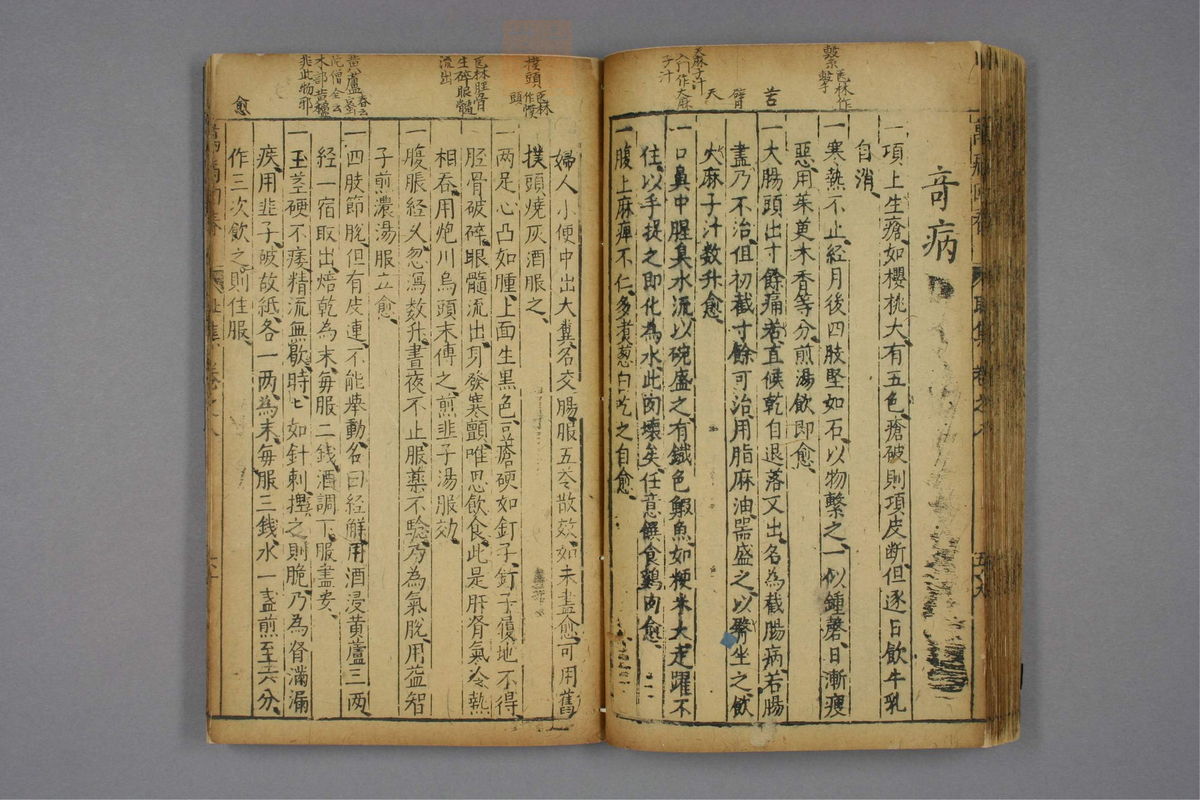 奇病
一項上生瘡如櫻桃大有五色瘡破則項皮断但逐日飲牛乳
自消
一寒熱不止経月後四肢堅如石以物繫之一似鍾磬日漸瘦
惡用茱萸木香等分煎湯飲即愈
一大腸頭出寸餘痛若直候乾自退落又出名為截腸病若腸
盡乃不治但初截寸餘可治用脂麻油器盛之以臀坐之飲
火麻子汁数升愈
一口鼻中腥臭水流以碗盛之有鐵色鰕魚如粳米大走躍不
住以手捉之即化為水此肉壊矣任意饌食鷄肉愈
一腹上麻痺不仁多煮葱白吃之自愈
婦人小便中出大糞名交腸服五苓散效如未盡愈可用舊
撲頭燒灰酒服之
一两足心凸如腫上面生黒色豆瘡硬如釘子釘子履地不得
胫骨破碎眼髓流出身發寒顫唯思飲食此是肝脊氣冷熱
相吞用炮川烏頭末傅之煎韭子湯服効
一腹脹経久忽瀉数升晝夜不止服薬不騐乃為氣脫用益智
子煎濃湯服立愈
一四肢節脫但有皮連不能舉動名曰経解用酒浸黄蘆三两
経一宿取出焙乾為末每服二銭酒調下服盡安
一玉茎硬不痿精流無歇時時如針刺揑之則脆乃為脊滿漏
疾用韭子破故紙各一两為末每服三錢水一盞煎至六分
作三次飲之則住服
愈
繫医林作撃
苦
臀
天
天麻子汁
入门作大麻
子汁
撲頭医林作幞
頭
医林胫骨
生碎眼髓
流出